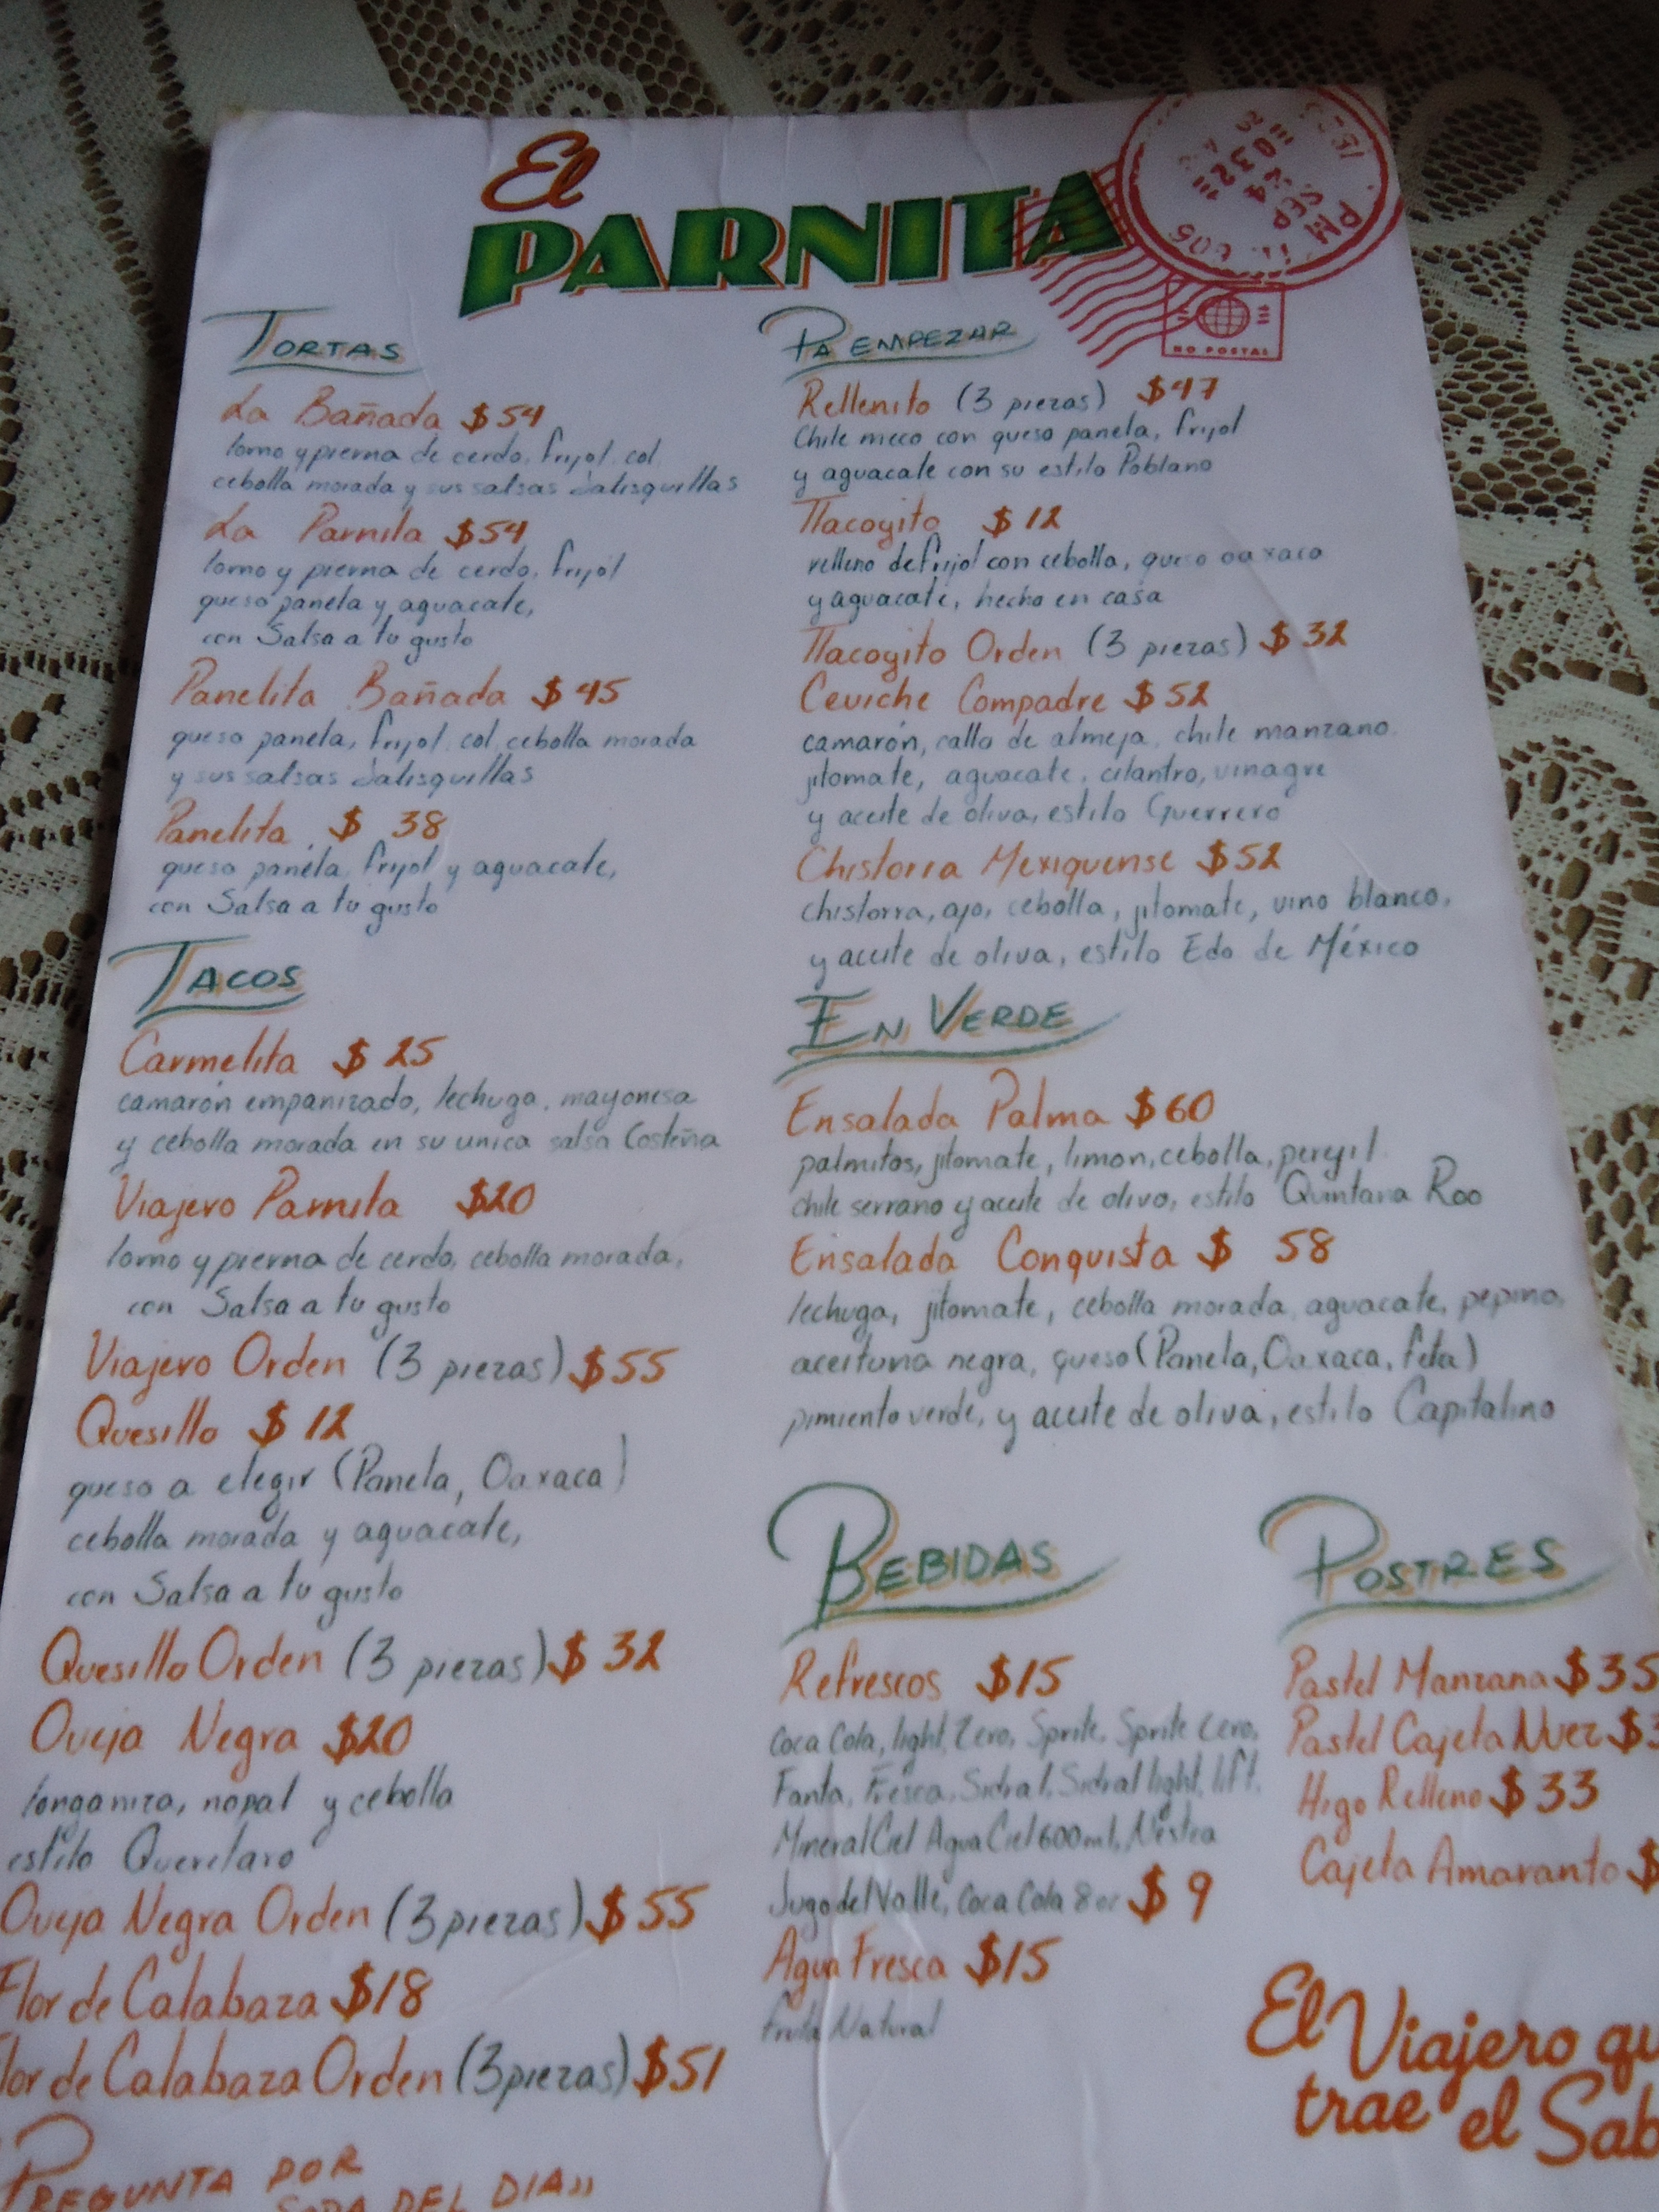 El
PARNITA
NO POSTAL
TORTAS
La Bañada $54
lomo y pierna de cerdo, frijol, col,
cebolla morada y sus salsas Jalisquillas
La Parnita $54
lomo y pierna de cerdo, frijol
queso panela y aguacate,
con Salsa a tu gusto
Panelita Bañada $45
queso panela, frijol, col, cebolla morada
y sus salsas Jalisquillas
Panelita $ 38
queso panela, frijol y aguacate,
con Salsa a tu gusto
TACOS
Carmelita $25
camarón empanizado, lechuga, mayonesa
y cebolla morada en su unica salsa Costeña
Viajero Parnita $20
lomo y pierna de cerdo, cebolla morada,
con Salsa a tu gusto
Viajero Orden (3 piezas) $55
Quesillo $12
queso a elegir (Panela, Oaxaca)
cebolla morada y aguacate,
con Salsa a tu gusto
Quesillo Orden (3 piezas) $32
Oveja Negra $20
longaniza, nopal y cebolla
estilo Queretaro
Oveja Negra Orden (3 piezas) $55
Flor de Calabaza $18
lor de Calabaza Orden (3 piezas) $51
PREGUNTA POR
SOPA DEL DIA
PA EMPEZAR
Rellenito (3 piezas) $47
Chile meco con queso panela, frijol
y aguacate con su estilo Poblano
Tlacoyito $12
relleno de frijol con cebolla, queso oaxaca
y aguacate, hecho en casa
Tlacoyito Orden (3 piezas) $32
Ceviche Compadre $52
camarón, callo de almeja, chile manzano,
jitomate, aguacate, cilantro, vinagre
y aceite de oliva, estilo Guerrero
Chistorra Mexiquense $52
chistorra, ajo, cebolla, jitomate, vino blanco,
y aceite de oliva, estilo Edo de México
EN VERDE
Ensalada Palma $60
palmitos, jitomate, limon, cebolla, perejil
chile serrano y aceite de olivo, estilo Quintana Roo
Ensalada Conquista $ 58
lechuga, jitomate, cebolla morada, aguacate, pepino,
aceituna negra, queso (Panela, Oaxaca, feta)
pimiento verde, y aceite de oliva, estilo Capitalino
BEBIDAS
Refrescos $15
Coca Cola, light, Zero, Sprite, Sprite Zero,
Fanta, Fresca, Sidral, Sidral light, lift,
Mineral Ciel, Agua Ciel 600ml, Nestea
Jugo del Valle, Coca Cola 8oz $9
Agua Fresca $15
Fruta Natural
POSTRES
Pastel Manzana $35
Pastel Cajeta Nuez $3
Higo Relleno $33
Cajeta Amaranto $
El Viajero qu
trae el Sab